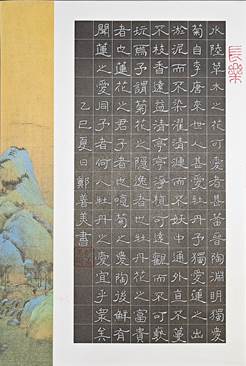 長樂
水陸草木之花可愛者甚蕃晉陶淵明獨愛
菊自李唐來世人甚愛牡丹予獨愛蓮之出
淤泥而不染濯清漣而不妖中通外直不蔓
不枝香遠益清亭亭淨植可遠觀而不可褻
玩焉予謂菊花之隱逸者也牡丹花之富貴
者也蓮花之君子者也噫菊之愛陶後鮮有
聞蓮之愛同予者何人牡丹之愛宜乎眾矣
乙巳夏日鄭善美書